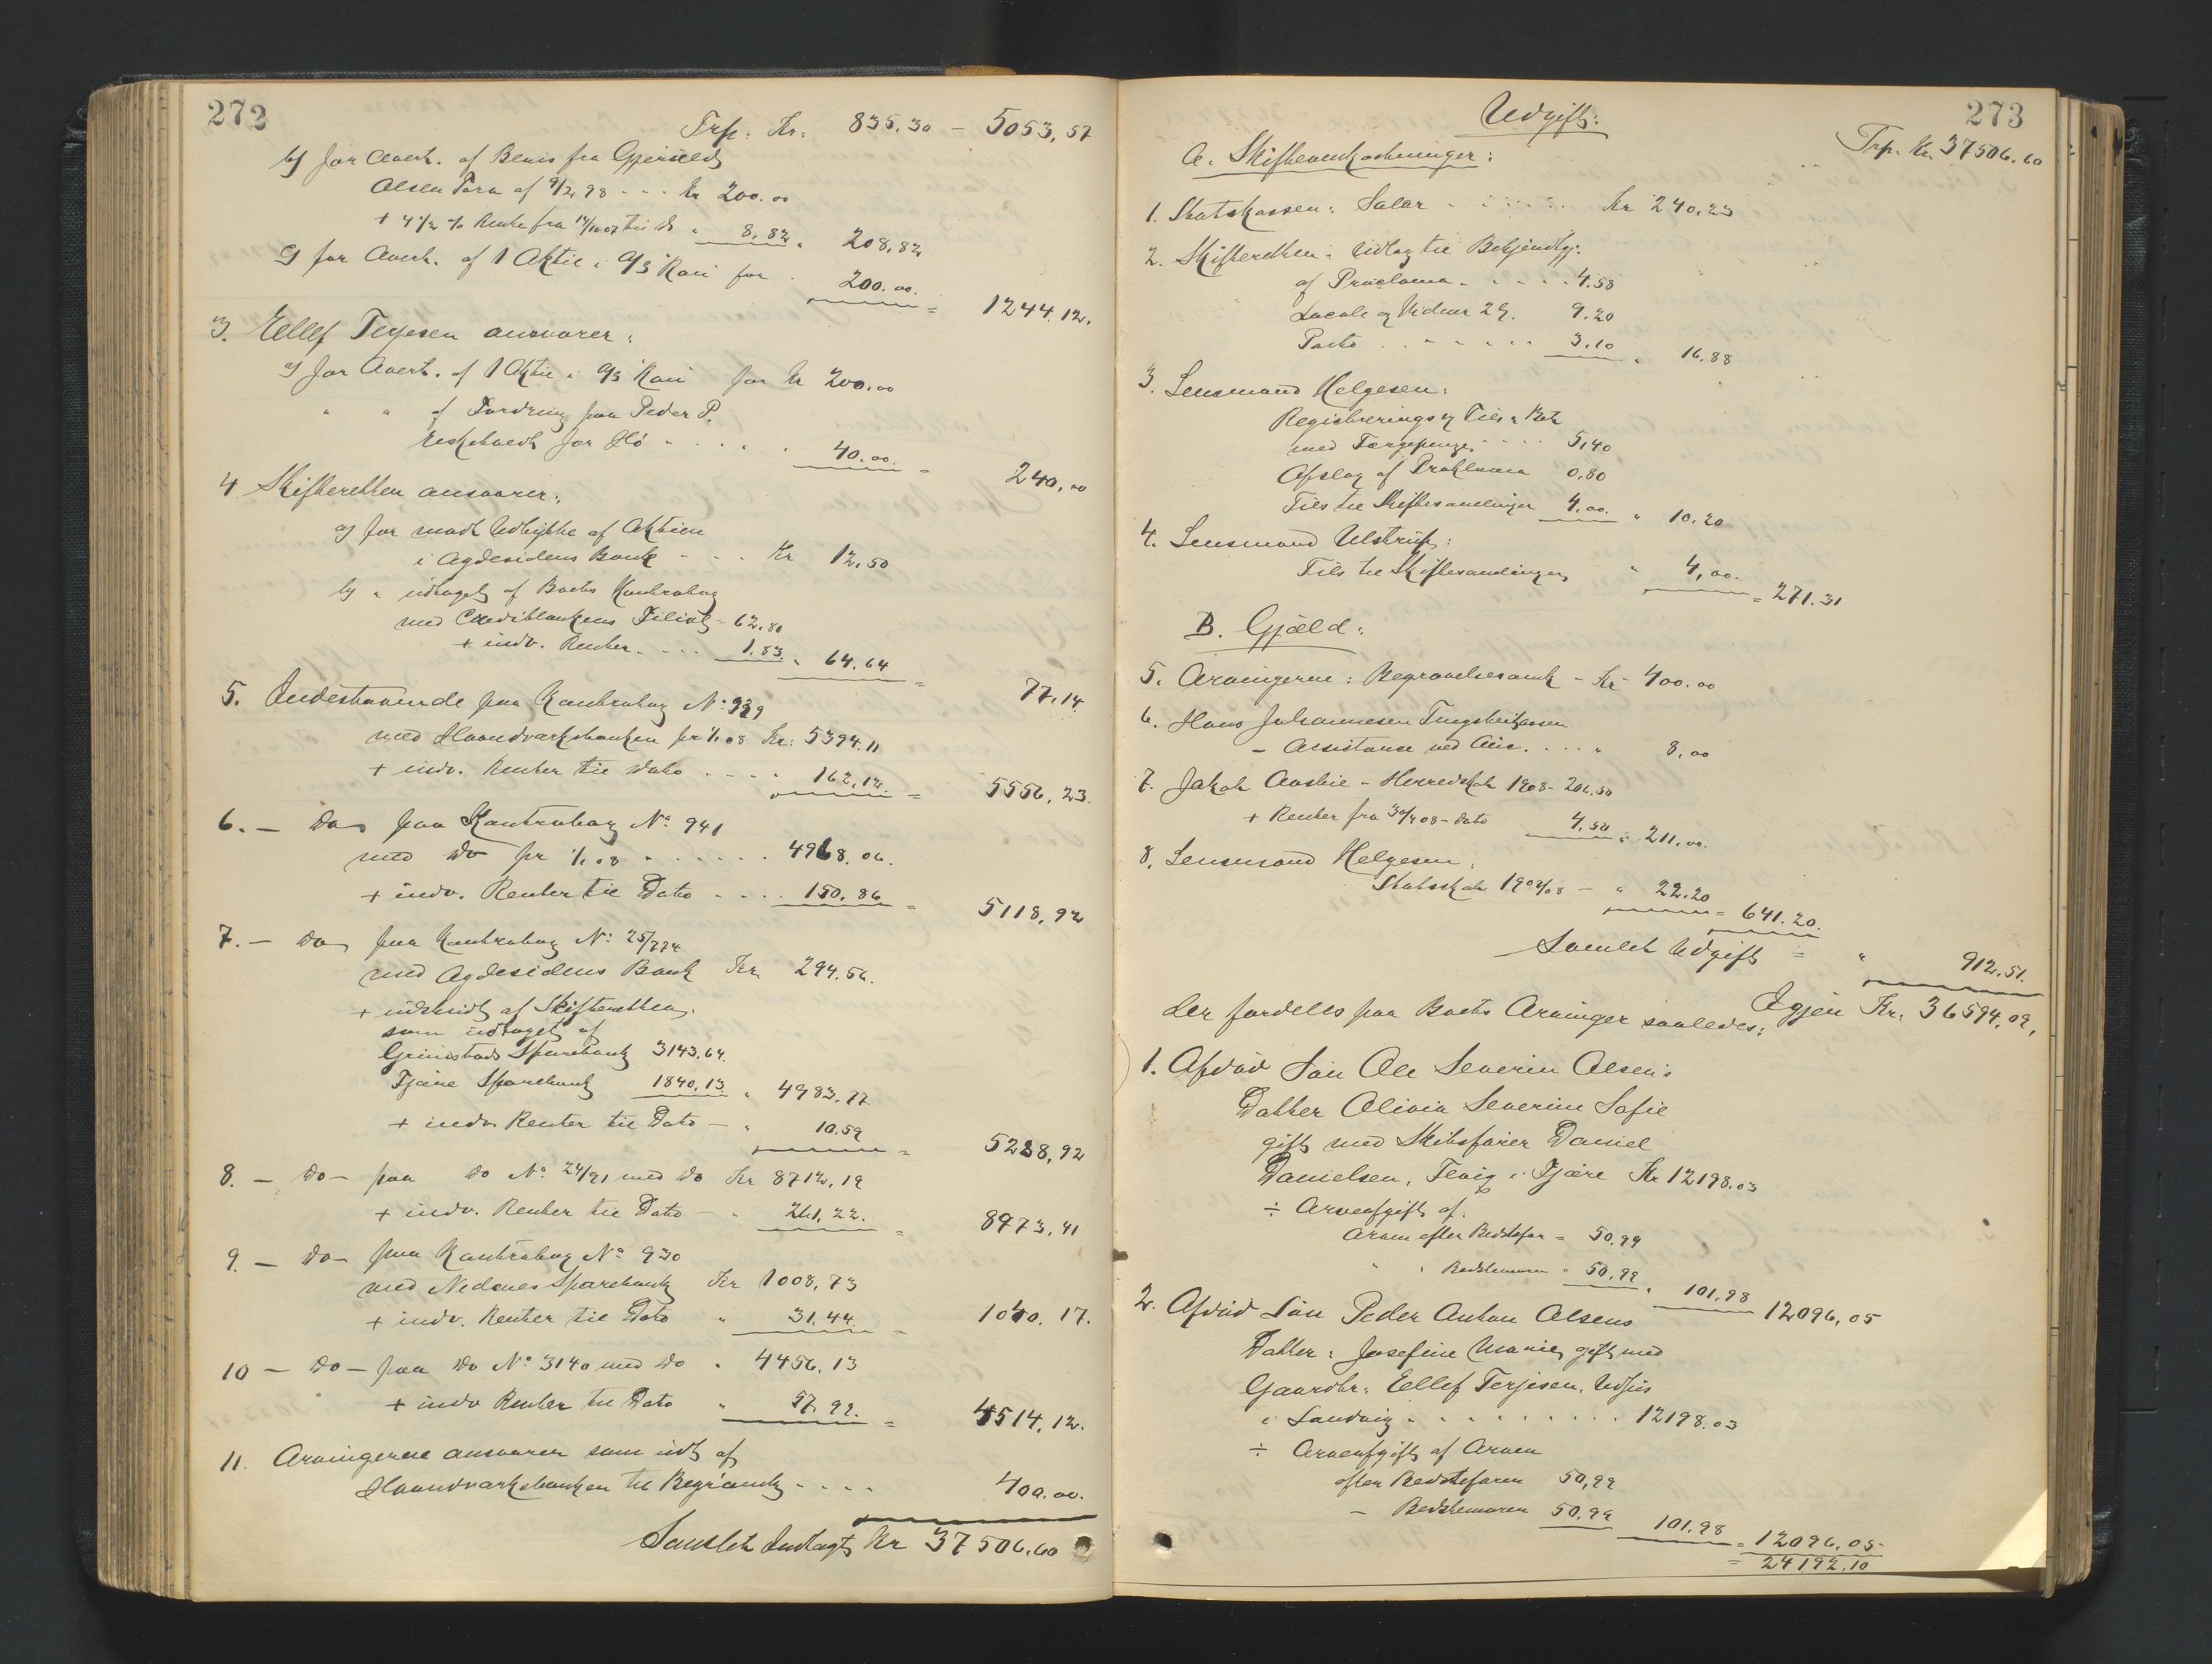 272
Trp. Kr. 835,30 – 5053,57
b) for Overt. af Bevis fra Gjeruled
Olsen Torn af 9/2 98 - - - Kr 200.00
+ 4 1/2 % Rente fra 14/10 07 til do " 8,82 " 208,82
c) for Overt. af 1 Aktie i D/S Kari for 200.00 = 1244.12.
3. Eellef Terjesen ansvarer:
a) for Overt. af 1 Aktie i D/S Kari for Kr 200.00
" " af Fordring paa Peder P.
for Hö - - - - 40.00. = 240,00
4 Skifteretten ansvarer:
a) for modt Udbytte af Aktien
i Agdesidens Bank - - - Kr 12,50
b) " udtaget af Boets Kontrabog
med Creditbankens Filial - 62.80
+ indv. Renter. - - - 1.83. " 64.64 = 77.14
5. Indestaaende paa Kontrabog No 939
med Haandværksbanken pr 1/1 08 Kr: 5394.11
+ indv. Renter til Dato - - - - 162,12. = 5556,23.
6. – Do paa Kontrabog No 941
med Do pr 1/1 08 - - - - - - 4968.06.
+ indv. Renter til Dato - - - - 150.86 = 5118,92
7. – Do paa Kontrabog No 25/224
med Agdesidens Bank Kr. 294.56.
+ indskudt af Skifteretten
som udtaget af
Grimstads Sparebank 3143.64.
Fjære Sparebank 1840.13 " 4983.77
+ indv Renter til Dato – " 10.59 = 5288,92
8. – Do – paa Do No 24/91 med Do Kr 8712,19
+ indv. Renter til Dato – " 261,22. = 8973,41
9. – Do – paa Kontrabog No 930
med Nedenes Sparebank Kr 1008,73
+ indv. Renter til Dato " 31.44. = 1040.17.
10 – Do – paa Do No 3140 med Do " 4456.13
+ indv Renter til Dato " 57.99. = 4514,12.
11. Arvingerne ansvarer som udt af
Haandværksbanken til Begr.omk - - - - 400.00.
Samlet Indtægt Kr 37506.60
273
Udgift:
Trp. Kr. 37506.60
A. Skifteomkostninger:
1. Statskassen: Salær - - - - - Kr 240,23
2. Skifteretten: Udlæg til Bekjendtg.
af Proclama - - - - - 4.58
Locale og Vidner 2 G. 9.20
Porto - - - - - - 3.10 " 16.88
3. Lensmand Helgesen:
Registrerings og
med Færgepenge - - - - 5,40
Opslag af Proklama 0,80
til Skiftesamlinger 4.00. " 10.20
4. Lensmand Ulstrup:
til Skiftesamlingen " 4,00. = 271.31
B. Gjæld:
5. Arvingerne: Begravelsesomk – Kr 400.00
6. Hans Johannesen
– Assistance ved Auc. - - - " 8,00
7. Jakob – Herredskat 1908 - 206.50
+ Renter fra 30/4 08 – Dato 4,50 " 211,00.
8. Lensmand Helgesen:
Statsskat 1907/08 – " 22.20 = 641.20.
Samlet Udgift = " 912.51.
Igjen Kr. 36594,09,
der fordeles paa Boets Arvinger saaledes:
1. Afdöd Sön Ole Severin Olsen's
Datter Olivia Severine Sofie
gift med Skibsförer Daniel
Danielsen, Fevig i Fjære Kr 12198.03
÷ Arveafgift af:
Arven efter Bedstefar = 50.99
" " Bedstemoren " 50.99 " 101.98 12096,05
2. Afdöd Sön Peder Anton Olsens
Datter: Josefine Marie, gift med
Gaardbr. Eellef Terjesen, Udjus
i Landvig - - - - - - - - - 12198.03
÷ Arveafgift af Arven
efter Bedstefaren 50,99
– Bedstemoren 50.99 101.98 = 12096,05
= 24192.10